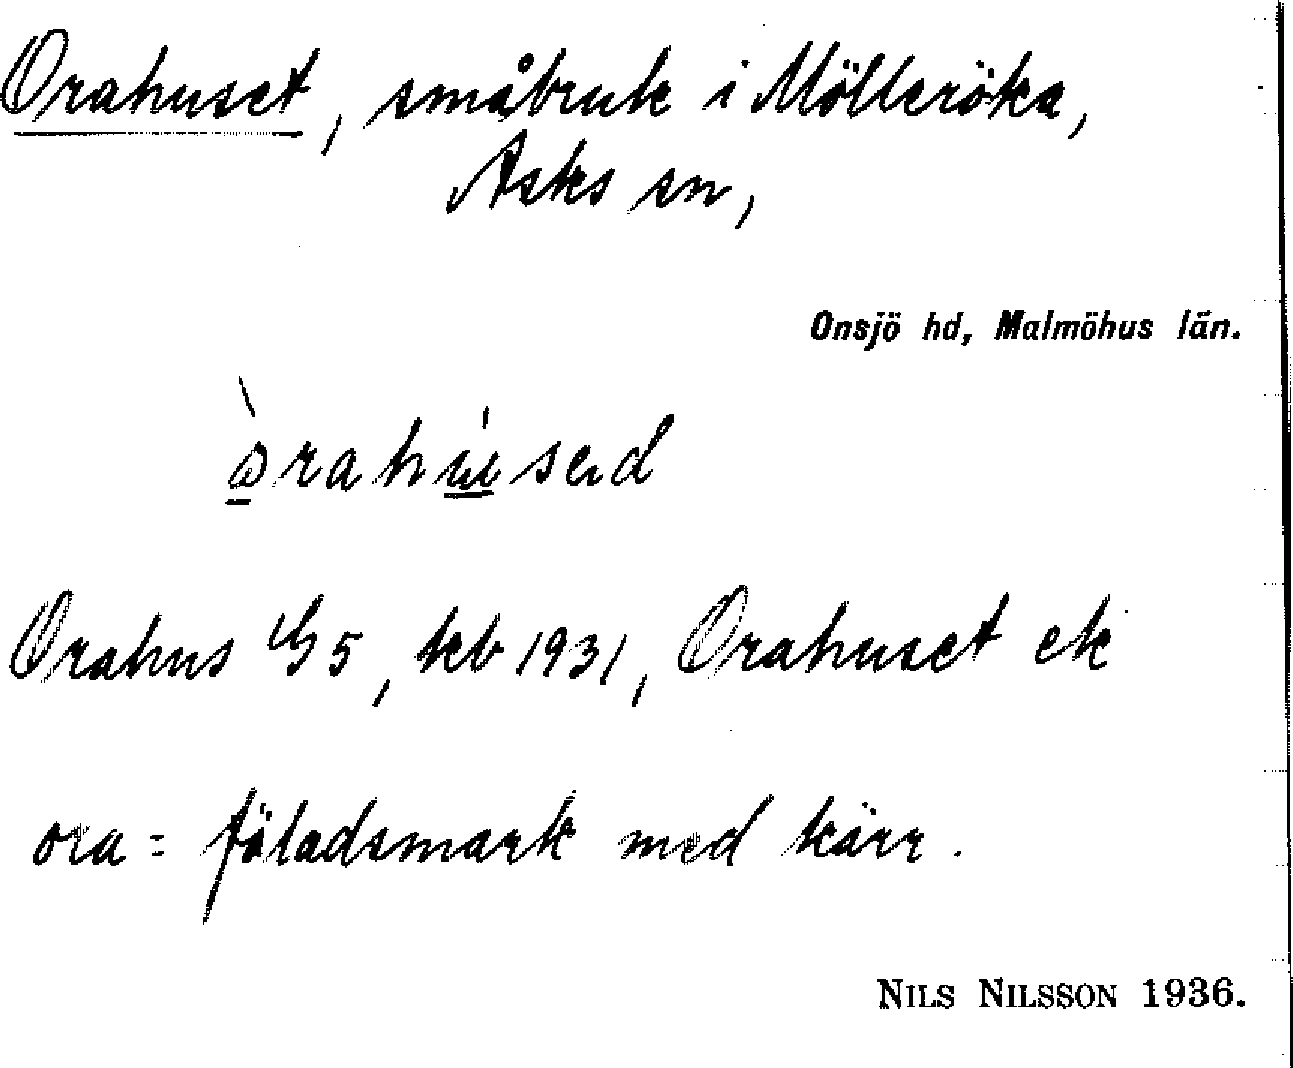 Orahuset, småbruk i Mölleröka,
Asks sn,
Onsjö hd, Malmöhus län.
Orahus 5, kb 1931, Orahuset ek
ora = föladsmark med kärr.
NILS NILSSON 1936.